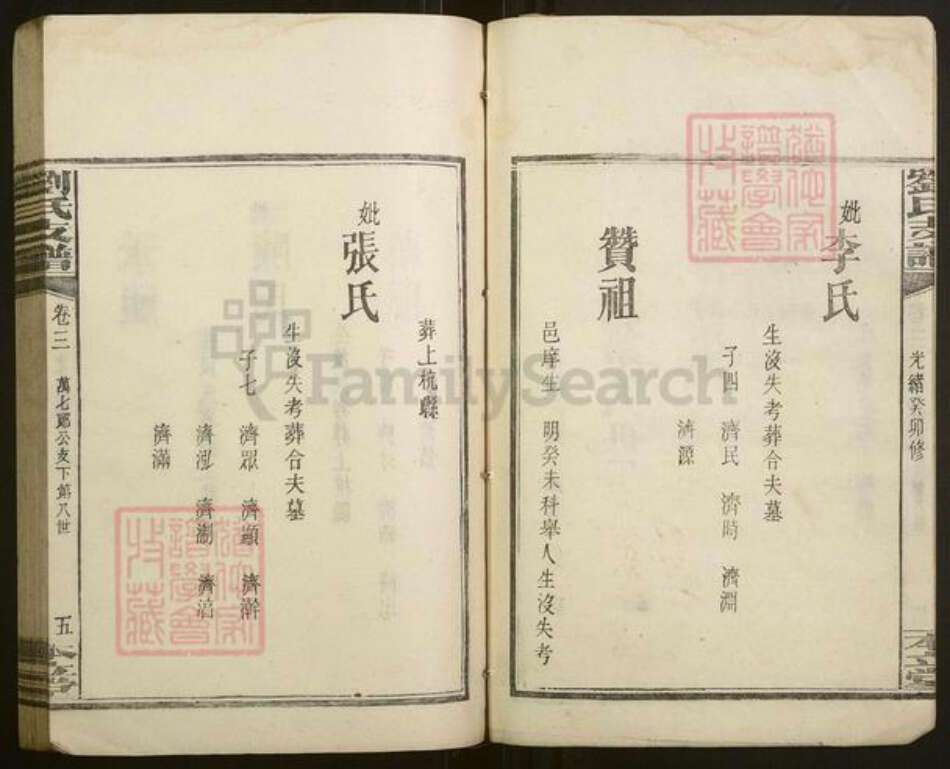 劉氏支譜
光緒癸卯修
本立堂
妣李氏
生沒失考葬合夫墓
子四 濟民 濟時 濟淵
濟源
贊祖
邑庠生 明癸未科舉人生沒失考
葬上杭縣
妣張氏
生沒失考葬合夫墓
子七 濟眾 濟顯 濟澣
濟泓 濟制 濟洁
濟滿
劉氏支譜
卷三
萬七郎公支下第八世
五
本立堂
譜學會
特藏
譜學會
特藏
FamilySearch